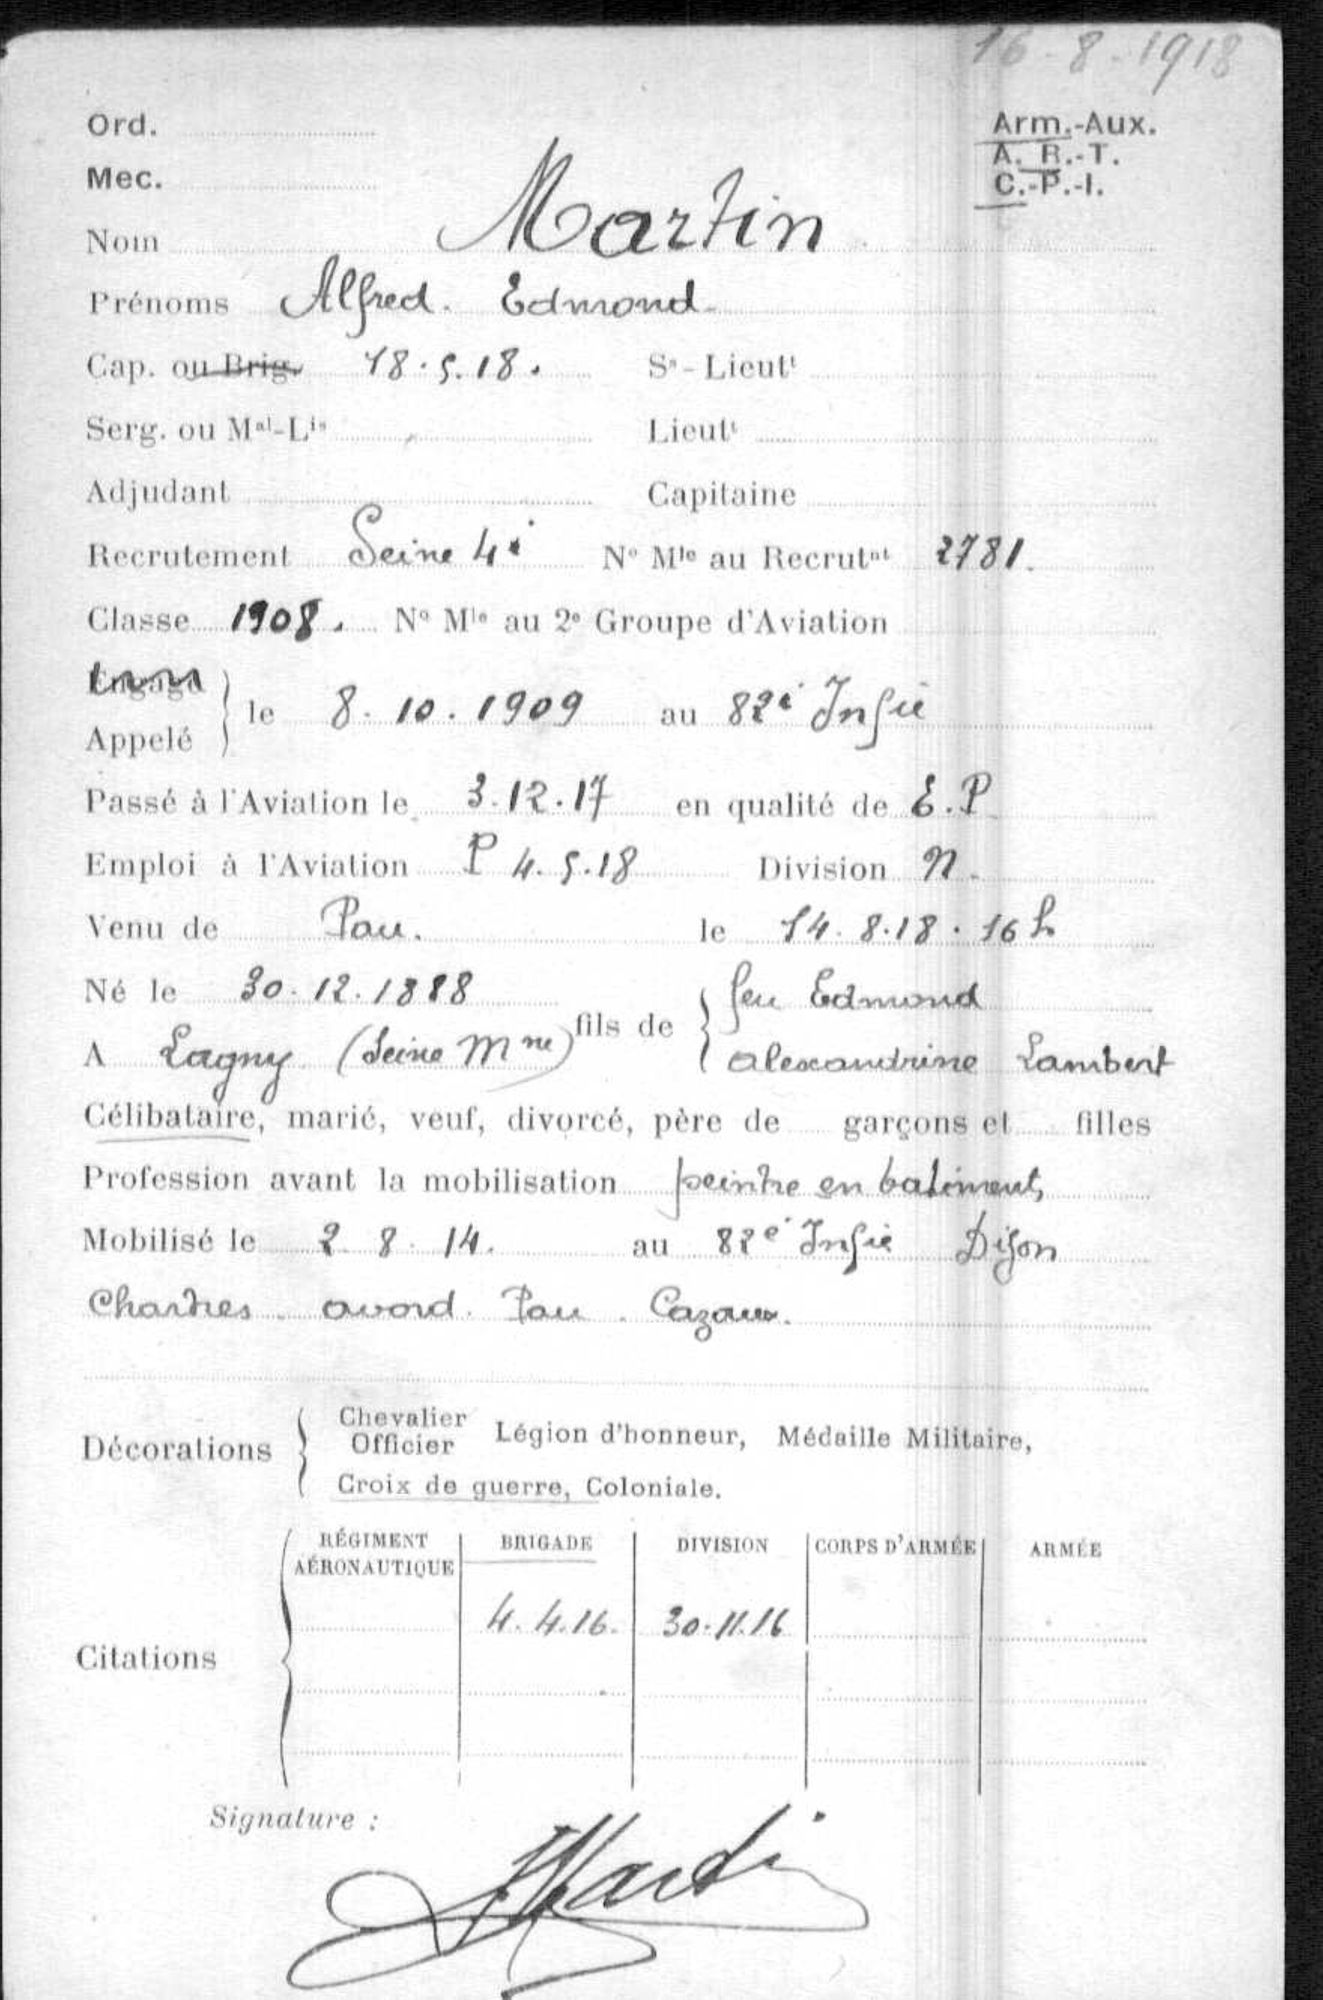 16-8-1918
Ord.
Arm.-Aux.
Mec.
A. R.-T.
C.-P.-I.
Nom Martin
Prénoms Alfred. Edmond
Cap. ou Brig. 18.5.18. Sˢ-Lieutᵗ
Serg. ou Mᵃˡ-Lⁱˢ Lieutᵗ
Adjudant Capitaine
Recrutement Seine 4e Nº Mˡᵉ au Recrutⁿᵗ 2781.
Classe 1908. Nº Mˡᵉ au 2ᵉ Groupe d'Aviation
Engagé
Appelé } le 8.10.1909 au 82e Infie
Passé à l'Aviation le 3.12.17 en qualité de E.P
Emploi à l'Aviation P 4.5.18 Division N.
Venu de Pau. le 14.8.18. 16h
Né le 30.12.1888 fils de { feu Edmond
A Lagny (Seine Mne) alexandrine Lambert
Célibataire, marié, veuf, divorcé, père de garçons et filles
Profession avant la mobilisation peintre en batiment
Mobilisé le 2 8 14. au 82e Infie Dijon
Chartres. avord. Pau. Cazaux.
Décorations { Chevalier Officier Légion d'honneur, Médaille Militaire,
Croix de guerre, Coloniale.
Citations { RÉGIMENT AÉRONAUTIQUE BRIGADE DIVISION CORPS D'ARMÉE ARMÉE
4.4.16. 30.11.16
Signature :
Martin